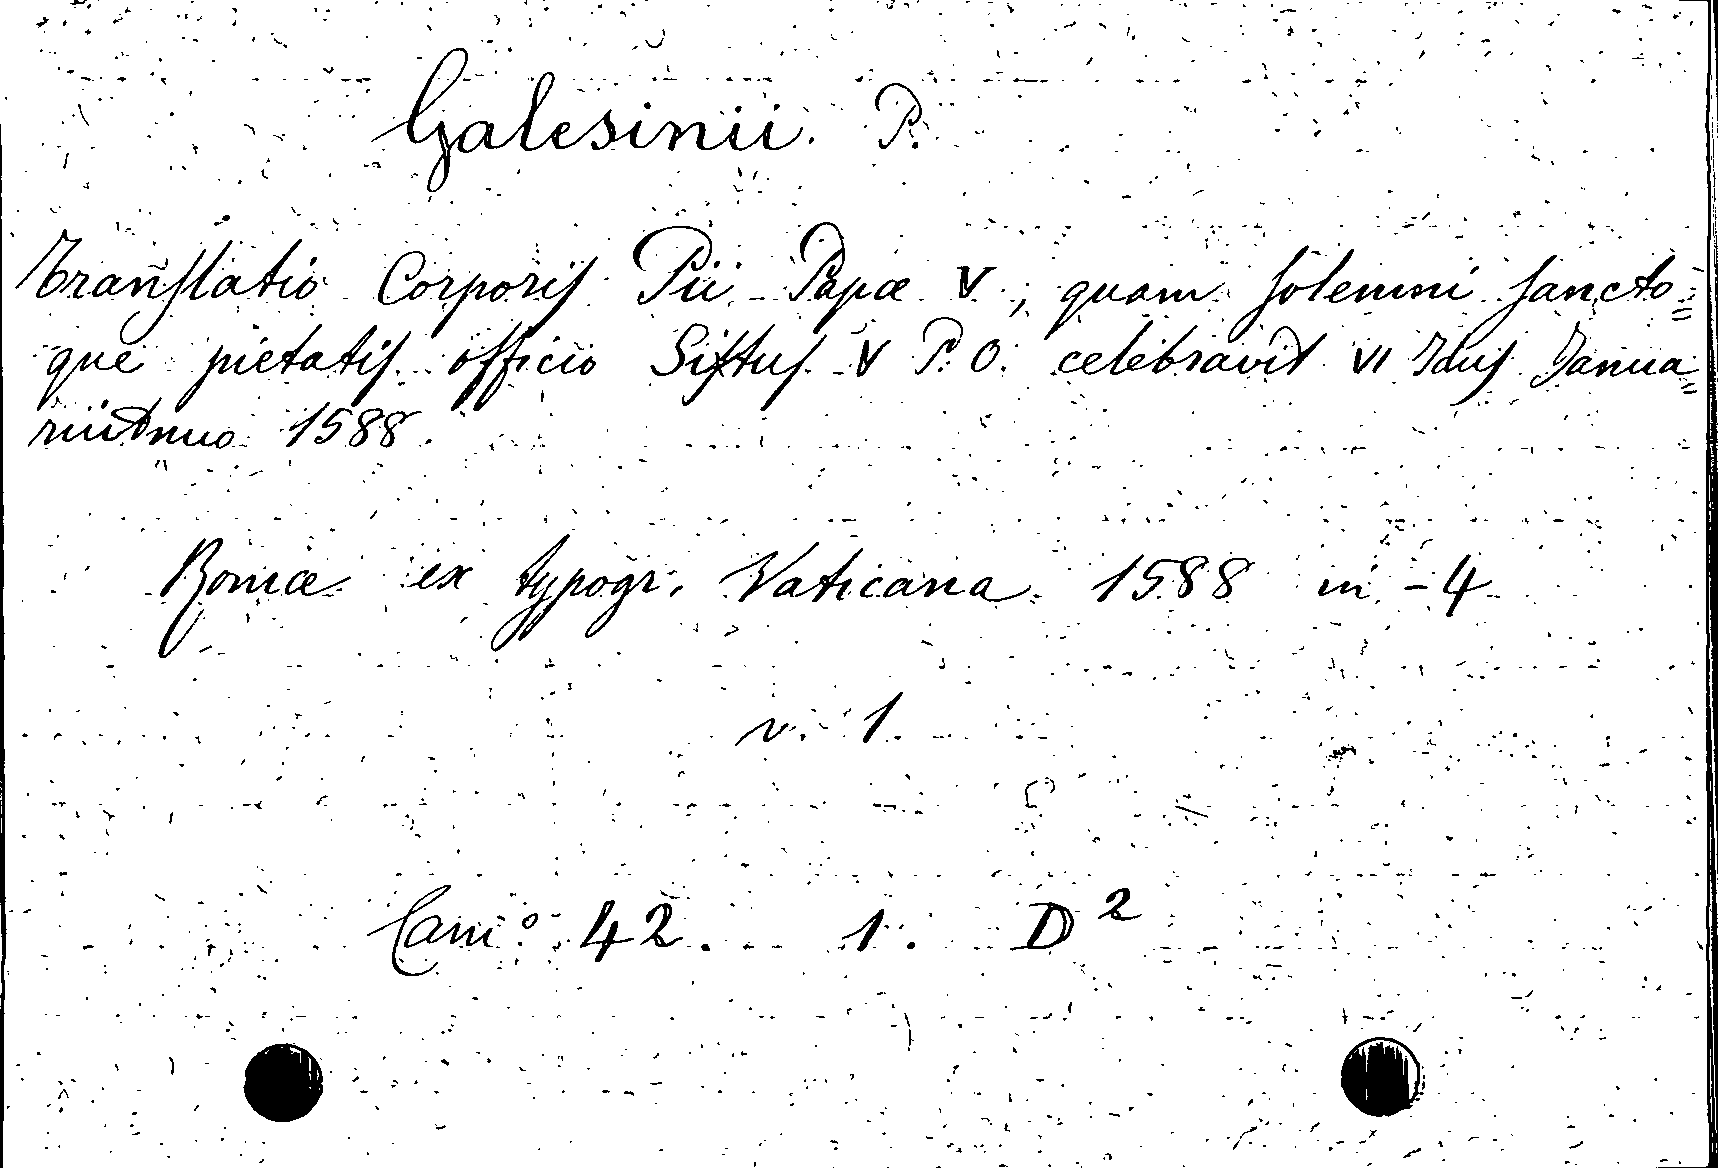 Galesinii. P.
Tranſlatio Corporiſ Pii Papæ V, quam ſolemni ſancto=
que pietatiſ officio Siſtuſ V P. O. celebravit VI Iduſ Janua=
rii Anno 1588.
Romæ ex typogr. Vaticana 1588 in-4
v. 1.
Cam° 42. 1. D²